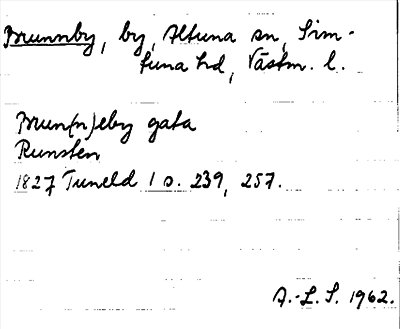 Brunnby, by, Altuna sn, Sim-
tuna hd, Västm. l.
Brun(n)eby gata
Runsten
1827 Tuneld I s. 239, 257.
A.-L. S. 1962.